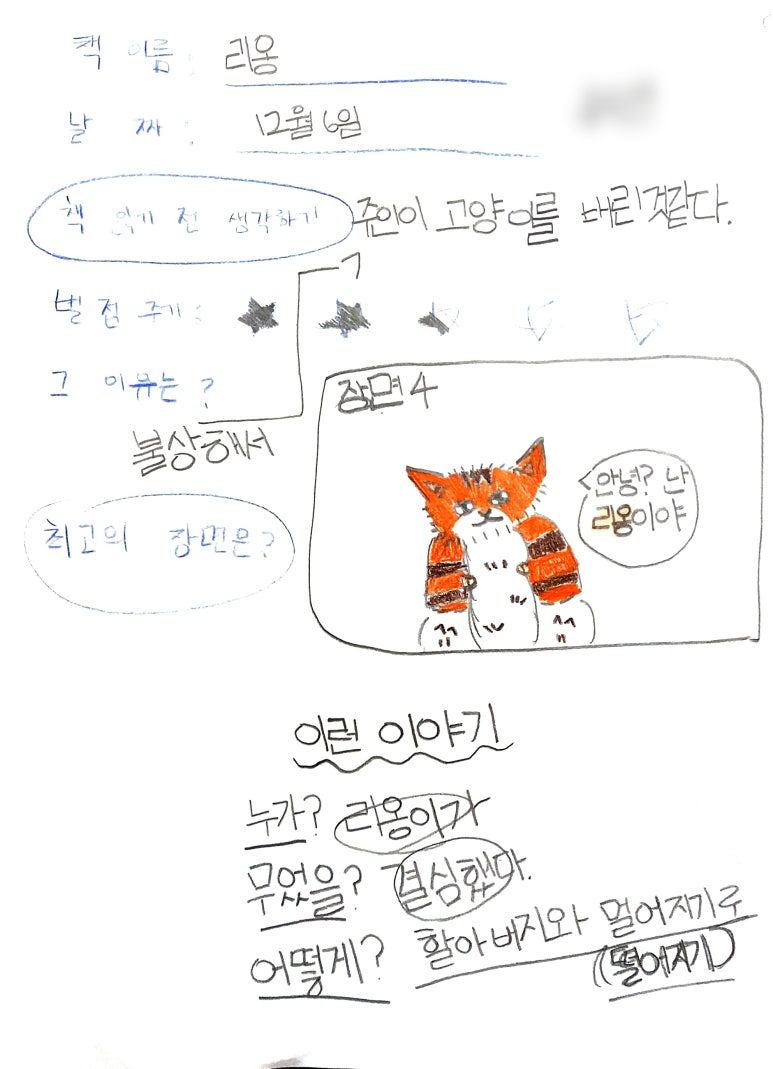 책 이름 : 리옹
날 짜 : 12월 6일
책 읽기 전 생각하기 주인이 고양이를 버린것같다.
별 점 주기 :
그 이유는?
불상해서
최고의 장면은?
장면 4
안녕? 난
리옹이야
이런 이야기
누가? 리옹이가
무엇을? 결심했다.
어떻게? 할아버지와 멀어지기루
(떨어지기)